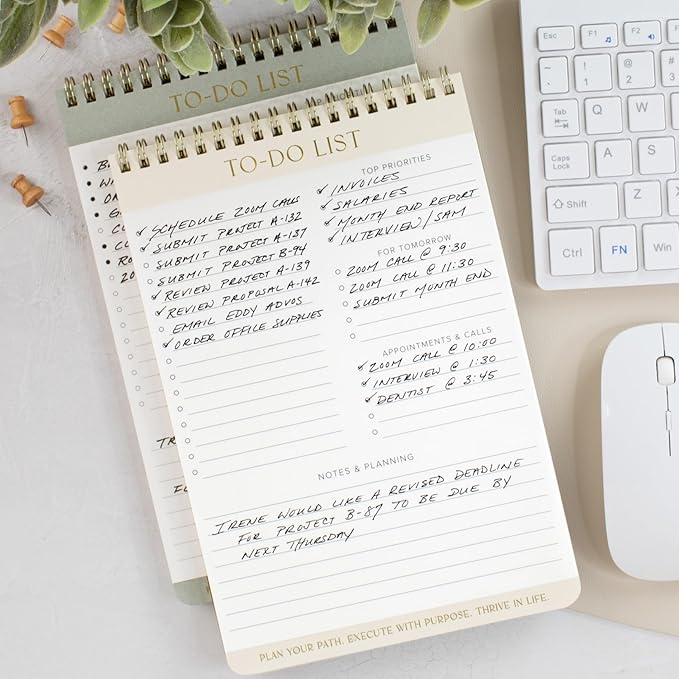 TO-DO LIST
TO-DO LIST
TOP PRIORITIES
✓ INVOICES
✓ SALARIES
✓ MONTH END REPORT
✓ INTERVIEW/SAM
✓ SCHEDULE ZOOM CALLS
✓ SUBMIT PROJECT A-132
SUBMIT PROJECT A-137
SUBMIT PROJECT B-94
✓ REVIEW PROJECT A-139
✓ REVIEW PROPOSAL A-142
EMAIL EDDY ADVOS
✓ ORDER OFFICE SUPPLIES
FOR TOMORROW
ZOOM CALL @ 9:30
ZOOM CALL @ 11:30
SUBMIT MONTH END
APPOINTMENTS & CALLS
✓ ZOOM CALL @ 10:00
✓ INTERVIEW @ 1:30
✓ DENTIST @ 3:45
NOTES & PLANNING
IRENE WOULD LIKE A REVISED DEADLINE
FOR PROJECT B-87 TO BE DUE BY
NEXT THURSDAY
PLAN YOUR PATH. EXECUTE WITH PURPOSE. THRIVE IN LIFE.
Esc F1 F2
~ ! 1 @ 2 # 3
Tab Q W
Caps Lock A S
Shift Z
Ctrl FN Win